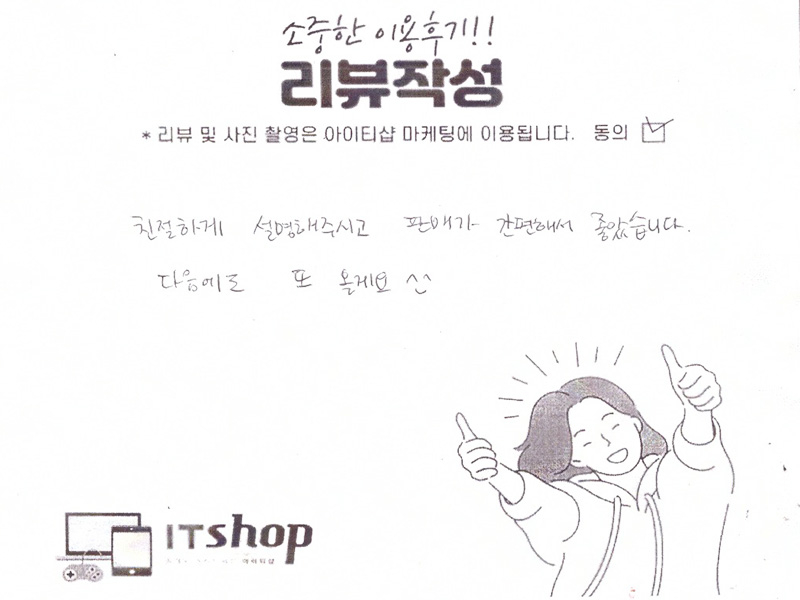 소중한 이용후기!!
리뷰작성
* 리뷰 및 사진 촬영은 아이티샵 마케팅에 이용됩니다. 동의 ☑
친절하게 설명해주시고 판매가 간편해서 좋았습니다.
다음에도 또 올게요 ^^
ITshop
아이티샵